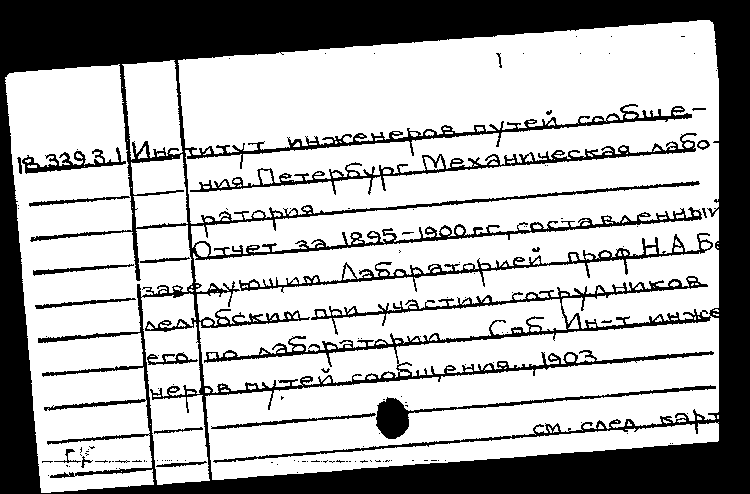 18.339.3.1 Институт инженеров путей сообще-
ния. Петербург. Механическая лабо-
ратория.
Отчет за 1895-1900 гг., составленный
заведующим Лабораторией проф. Н.А. Бе
лелюбским при участии сотрудников
его по лаборатории. Спб., Ин-т инже
неров путей сообщения., 1903
см. след. карт
ГК